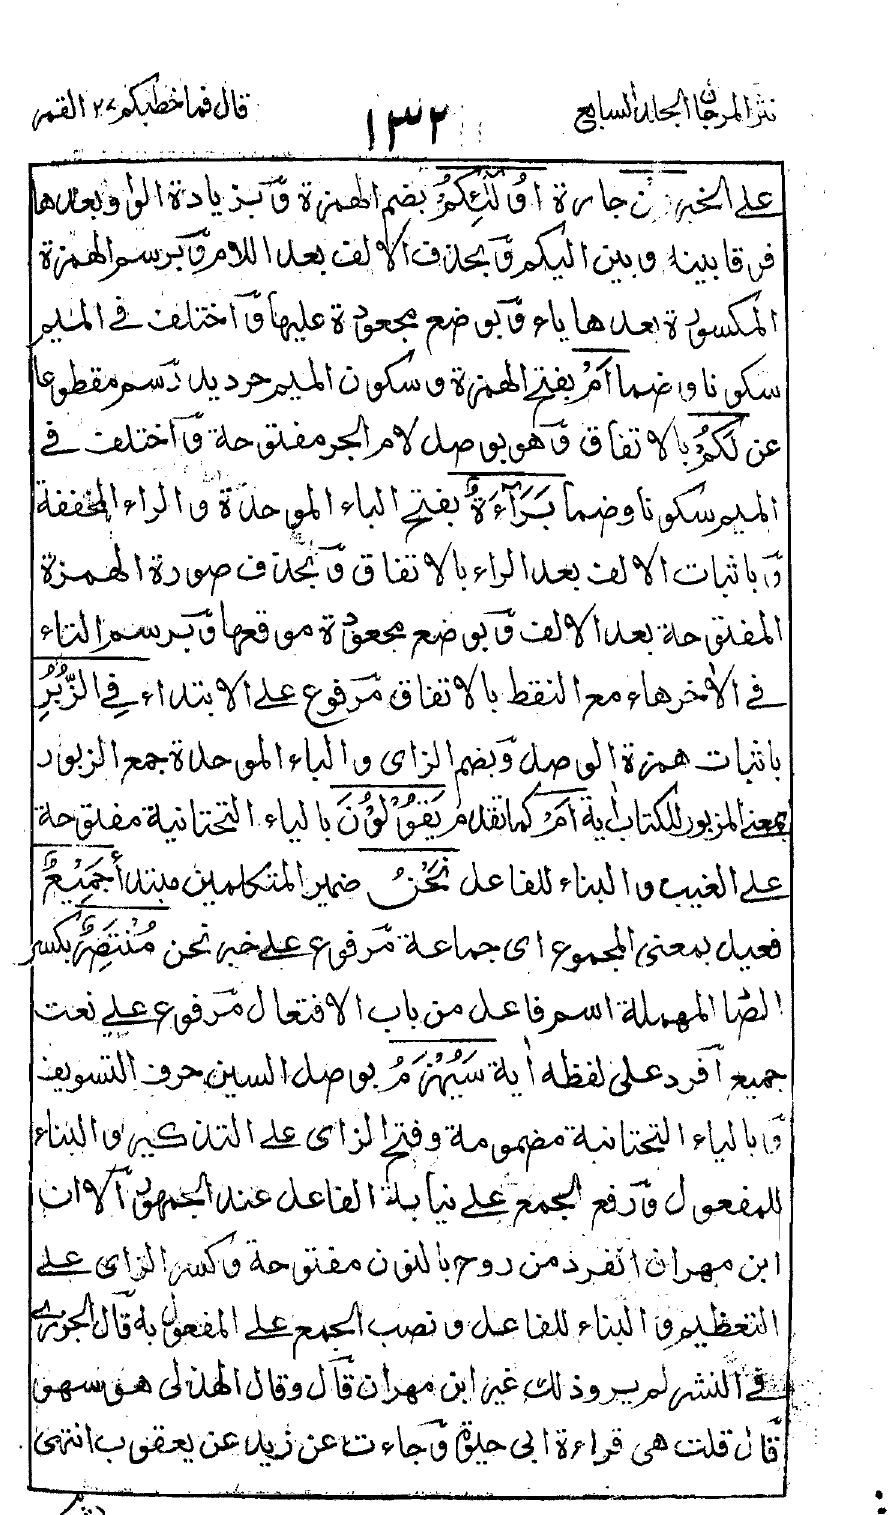 نثر المرجان الجلد السابع
١٣٢
قال فما خطبكم ٢٧ القمر
على الخبر من جارة اُولٰٓئِكُمْ بضم الهمزة و بزيادة الواو بعدها
فرقا بينه و بين اليكم و بحذف الالف بعد اللام و برسم الهمزة
المكسورة بعدها ياء و بوضع مجعودة عليها و اختلف في الميم
سكونا و ضما اَمْ بفتح الهمزة و سكون الميم حرديد رسم مقطوعا
عن لَكُمْ بالاتفاق و هو بوصل لام الجر مفتوحة و اختلف في
الميم سكونا و ضما بَرَآءَةٌ بفتح الباء الموحدة و الراء المخففة
و باثبات الالف بعد الراء بالاتفاق و بحذف صورة الهمزة
المفتوحة بعد الالف و بوضع مجعودة موقعها و برسم التاء
في الاٰخر هاء مع النقط بالاتفاق مرفوع على الابتداء فِي الزُّبُرِ
باثبات همزة الوصل و بضم الزاى و الباء الموحدة جمع الزبور
بمعنى المزبور للكتاب اٰية اَمْ كما تقدم يَقُوْلُوْنَ بالياء التحتانية مفتوحة
على الغيب و البناء للفاعل نَحْنُ ضمير المتكلمين مبتدأ جَمِيْعٌ
فعيل بمعنى المجموع اى جماعة مرفوع على خبر نحن مُنْتَصِرٌ بكسر
الصاد المهملة اسم فاعل من باب الافتعال مرفوع على نعت
جميع افرد على لفظه اٰية سَيُهْزَمُ بوصل السين حرف التسويف
و بالياء التحتانية مضمومة و فتح الزاى على التذكير و البناء
للمفعول و رفع الجمع على نيابة الفاعل عند الجمهور الا ان
ابن مهران انفرد من روح بالنون مفتوحة و كسر الزاى على
التعظيم و البناء للفاعل و نصب الجمع على المفعول به قال الجزرى
في النشر لم يرو ذلك غير ابن مهران قال و قال الهذلى هو سهو
قال قلت هى قراءة ابى حيوة و جاءت عن زيد عن يعقوب انتهى